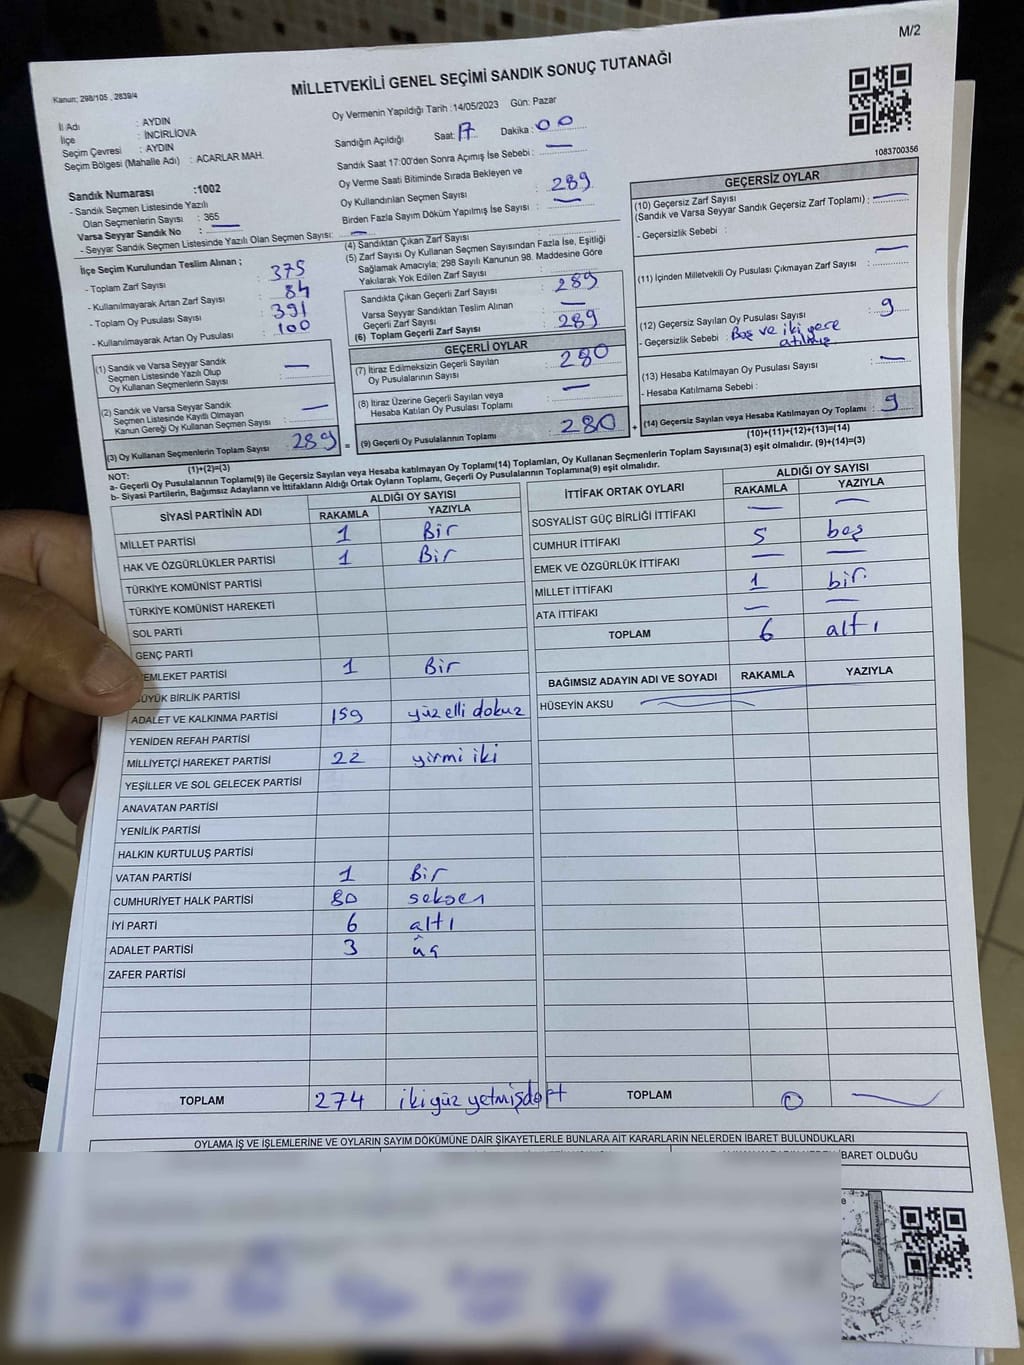 M/2
MİLLETVEKİLİ GENEL SEÇİMİ SANDIK SONUÇ TUTANAĞI
Kanun: 298/105 , 2839/4
İl Adı : AYDIN
İlçe : İNCİRLİOVA
Seçim Çevresi : AYDIN
Seçim Bölgesi (Mahalle Adı) : ACARLAR MAH.
Sandık Numarası :1002
- Sandık Seçmen Listesinde Yazılı
Olan Seçmenlerin Sayısı : 365
Varsa Seyyar Sandık No : —
- Seyyar Sandık Seçmen Listesinde Yazılı Olan Seçmen Sayısı: —
Oy Vermenin Yapıldığı Tarih :14/05/2023 Gün: Pazar
Sandığın Açıldığı Saat: 17 Dakika : 00
Sandık Saat 17:00'den Sonra Açımış İse Sebebi : —
Oy Verme Saati Bitiminde Sırada Bekleyen ve
Oy Kullandırılan Seçmen Sayısı : 289
Birden Fazla Sayım Döküm Yapılmış İse Sayısı : —
1083700356
İlçe Seçim Kurulundan Teslim Alınan ;
- Toplam Zarf Sayısı : 375
- Kullanılmayarak Artan Zarf Sayısı : 84
- Toplam Oy Pusulası Sayısı : 391
- Kullanılmayarak Artan Oy Pusulası : 100
(1) Sandık ve Varsa Seyyar Sandık
Seçmen Listesinde Yazılı Olup
Oy Kullanan Seçmenlerin Sayısı : —
(2) Sandık ve Varsa Seyyar Sandık
Seçmen Listesinde Kayıtlı Olmayan
Kanun Gereği Oy Kullanan Seçmen Sayısı : —
(3) Oy Kullanan Seçmenlerin Toplam Sayısı : 289 =
(1)+(2)=(3)
(4) Sandıktan Çıkan Zarf Sayısı :
(5) Zarf Sayısı Oy Kullanan Seçmen Sayısından Fazla İse, Eşitliği
Sağlamak Amacıyla; 298 Sayılı Kanunun 98. Maddesine Göre
Yakılarak Yok Edilen Zarf Sayısı :
Sandıkta Çıkan Geçerli Zarf Sayısı : 289
Varsa Seyyar Sandıktan Teslim Alınan
Geçerli Zarf Sayısı : —
(6) Toplam Geçerli Zarf Sayısı : 289
GEÇERLİ OYLAR
(7) İtiraz Edilmeksizin Geçerli Sayılan
Oy Pusulalarının Sayısı : 280
(8) İtiraz Üzerine Geçerli Sayılan veya
Hesaba Katılan Oy Pusulası Toplamı : —
(9) Geçerli Oy Pusulalarının Toplamı : 280 +
GEÇERSİZ OYLAR
(10) Geçersiz Zarf Sayısı
(Sandık ve Varsa Seyyar Sandık Geçersiz Zarf Toplamı) : —
- Geçersizlik Sebebi :
(11) İçinden Milletvekili Oy Pusulası Çıkmayan Zarf Sayısı : —
(12) Geçersiz Sayılan Oy Pusulası Sayısı : 9
- Geçersizlik Sebebi : Boş ve iki yere
atılmış
(13) Hesaba Katılmayan Oy Pusulası Sayısı : —
- Hesaba Katılmama Sebebi :
(14) Geçersiz Sayılan veya Hesaba Katılmayan Oy Toplamı : 9
(10)+(11)+(12)+(13)=(14)
NOT:
a- Geçerli Oy Pusulalarının Toplamı(9) ile Geçersiz Sayılan veya Hesaba katılmayan Oy Toplamı(14) Toplamları, Oy Kullanan Seçmenlerin Toplam Sayısına(3) eşit olmalıdır. (9)+(14)=(3)
b- Siyasi Partilerin, Bağımsız Adayların ve İttifakların Aldığı Ortak Oyların Toplamı, Geçerli Oy Pusulalarının Toplamına(9) eşit olmalıdır.
SİYASİ PARTİNİN ADI ALDIĞI OY SAYISI
RAKAMLA YAZIYLA
MİLLET PARTİSİ 1 Bir
HAK VE ÖZGÜRLÜKLER PARTİSİ 1 Bir
TÜRKİYE KOMÜNİST PARTİSİ
TÜRKİYE KOMÜNİST HAREKETİ
SOL PARTİ
GENÇ PARTİ
EMLEKET PARTİSİ 1 Bir
ÜYÜK BİRLİK PARTİSİ
ADALET VE KALKINMA PARTİSİ 159 yüz elli dokuz
YENİDEN REFAH PARTİSİ
MİLLİYETÇİ HAREKET PARTİSİ 22 yirmi iki
YEŞİLLER VE SOL GELECEK PARTİSİ
ANAVATAN PARTİSİ
YENİLİK PARTİSİ
HALKIN KURTULUŞ PARTİSİ
VATAN PARTİSİ 1 Bir
CUMHURİYET HALK PARTİSİ 80 seksen
İYİ PARTİ 6 altı
ADALET PARTİSİ 3 üç
ZAFER PARTİSİ
TOPLAM 274 ikiyüz yetmişdört
İTTİFAK ORTAK OYLARI ALDIĞI OY SAYISI
RAKAMLA YAZIYLA
SOSYALİST GÜÇ BİRLİĞİ İTTİFAKI — —
CUMHUR İTTİFAKI 5 beş
EMEK VE ÖZGÜRLÜK İTTİFAKI — —
MİLLET İTTİFAKI 1 bir.
ATA İTTİFAKI — —
TOPLAM 6 altı
BAĞIMSIZ ADAYIN ADI VE SOYADI RAKAMLA YAZIYLA
HÜSEYİN AKSU
TOPLAM 0 —
OYLAMA İŞ VE İŞLEMLERİNE VE OYLARIN SAYIM DÖKÜMÜNE DAİR ŞİKAYETLERLE BUNLARA AİT KARARLARIN NELERDEN İBARET BULUNDUKLARI
İBARET OLDUĞU